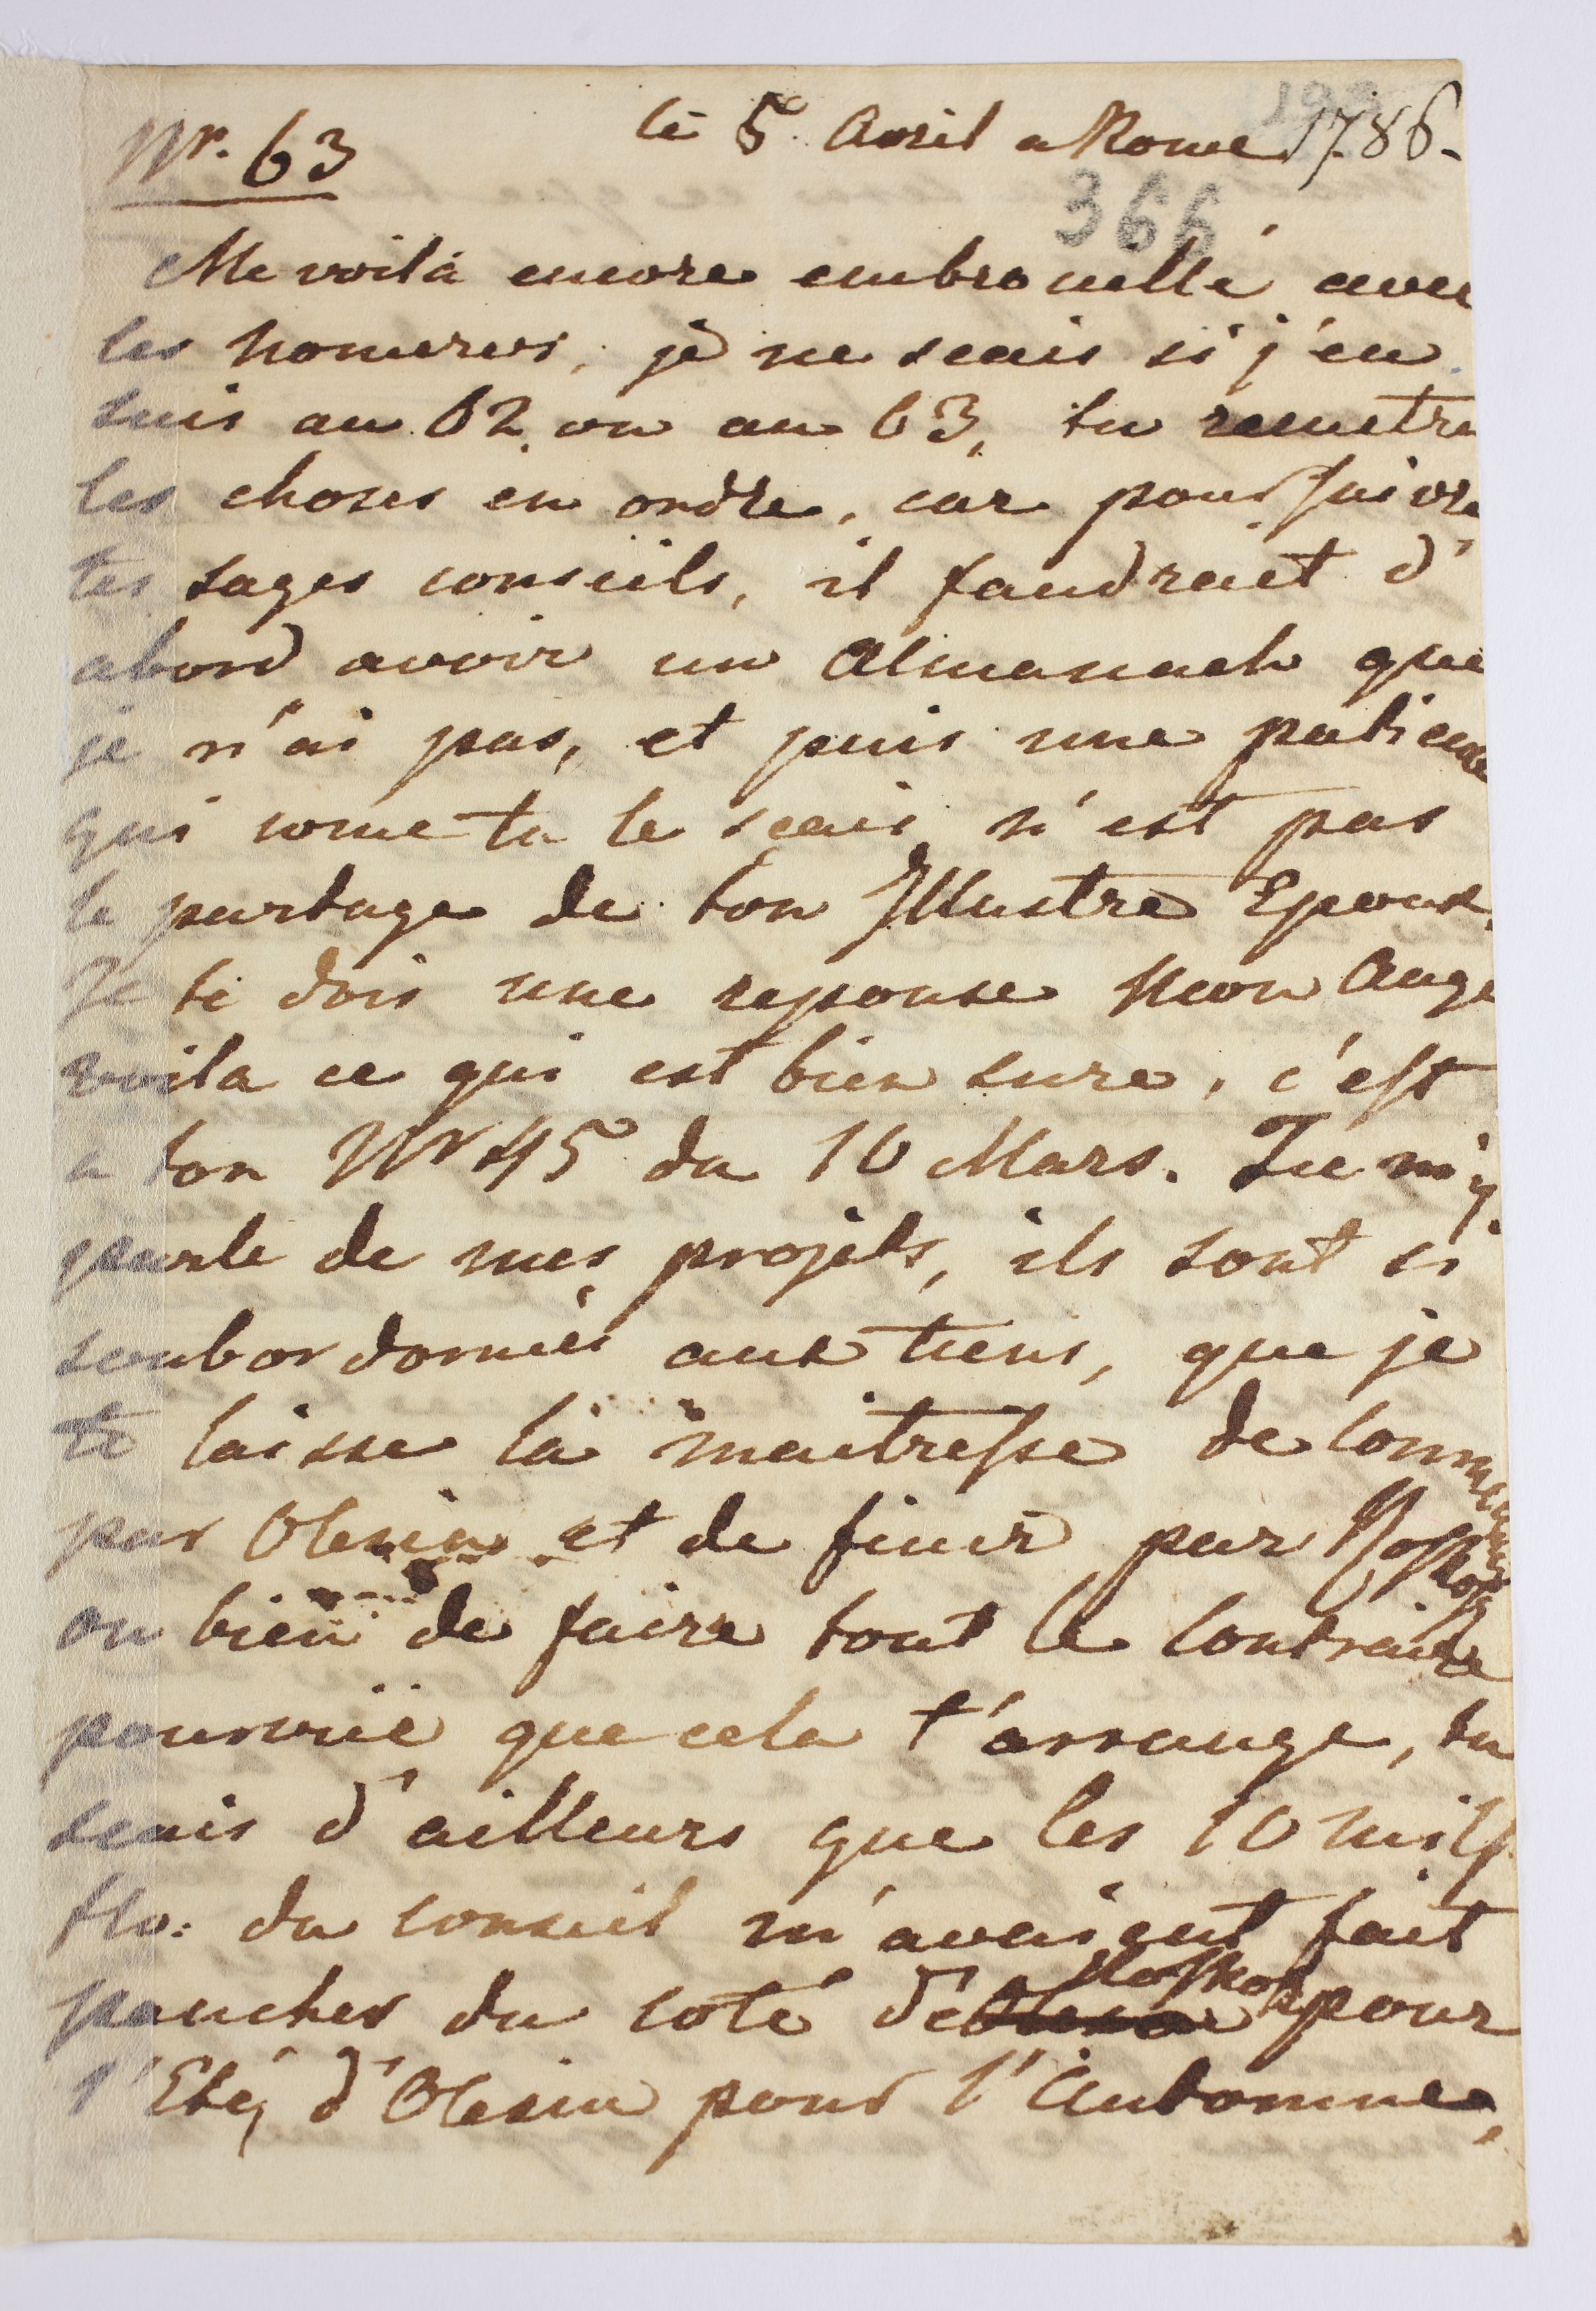 Nr. 63
le 5e Avril a Rome 1786.
366
Me voilà encore embrouillé avec
les nomeros, je ne scais si j'en
suis au 62 ou au 63, tu remetra
les choses en ordre, car pour suivre
tes sages conseils, il faudrait d'
abord avoir un Almanach que
je n'ai pas, et puis une patience
qui come tu le scais n'est pas
le partage de ton Illustre Epoux.
Je te dois une reponse Mon Ange
voila ce qui est bien sure, c'est
a ton Nr 45 du 10 Mars. Tu m'y
parle de mes projets, ils sont si
soubordonnés aux tiens, que je
te laisse la maitresse de commencer
par Olesin et de finir par Kosskoff
ou bien de faire tout le contraire
pourvuë que cela t'arrange, tu
scais d'ailleurs que les 10 mill
flo: du conseil m'avaient fait
pancher du coté de Kosskoff pour
l'Eté, d'Olesin pour l'Automne,